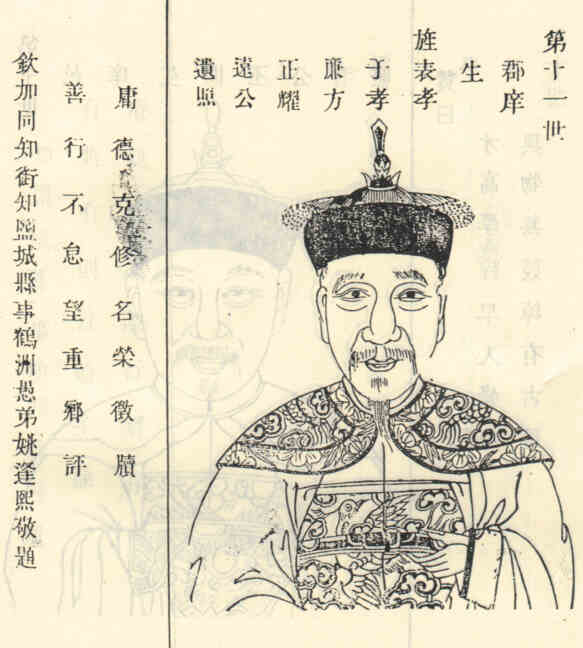 第十一世
郡庠
生
旌表孝
子孝
廉方
正耀
遠公
遺照
庸德克修名榮徵牘
善行不怠望重鄉評
欽加同知銜知鹽城縣事鶴洲愚弟姚逢熙敬題